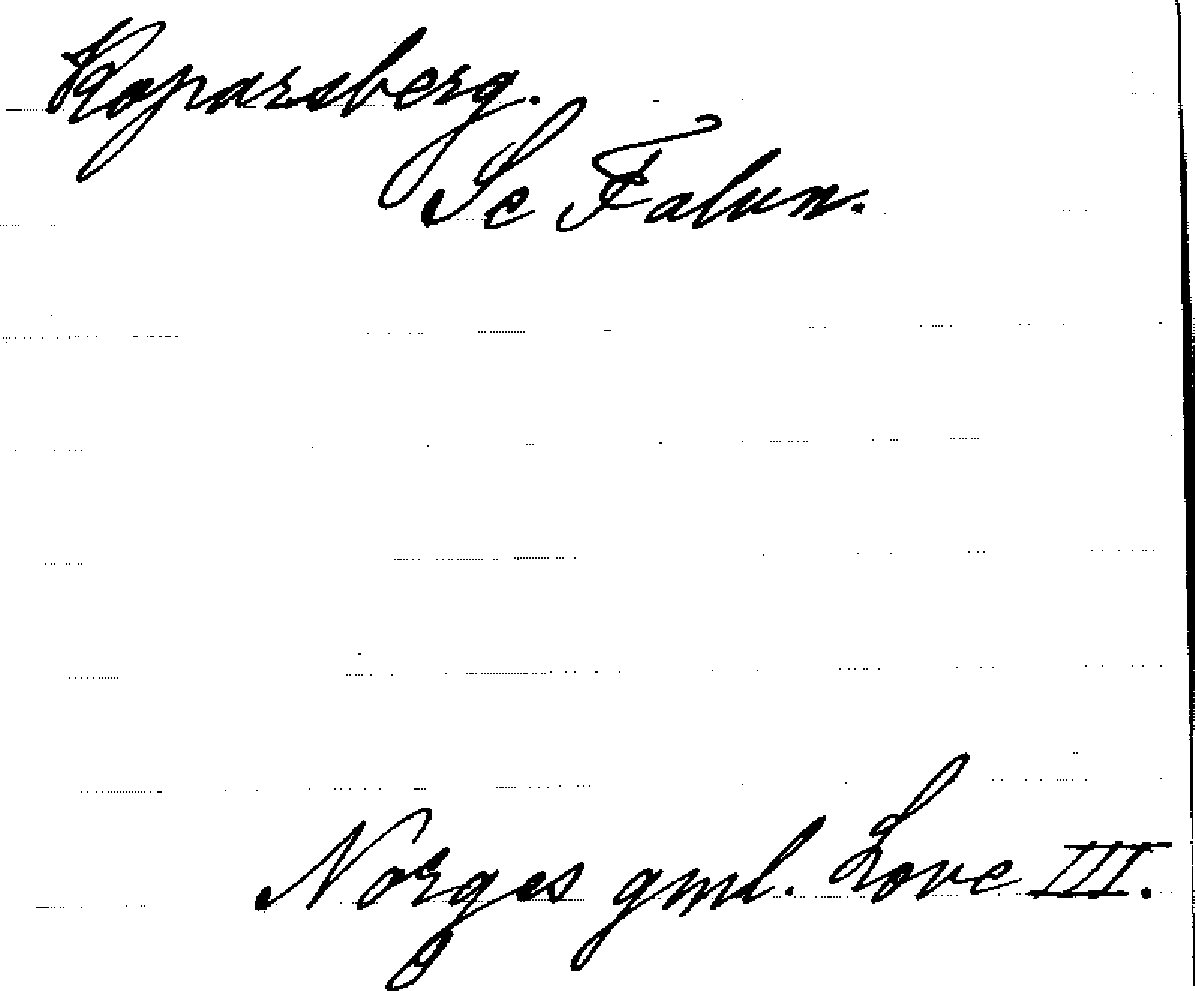 Koparsberg.
Se Falun.
Norges gml. Love III.